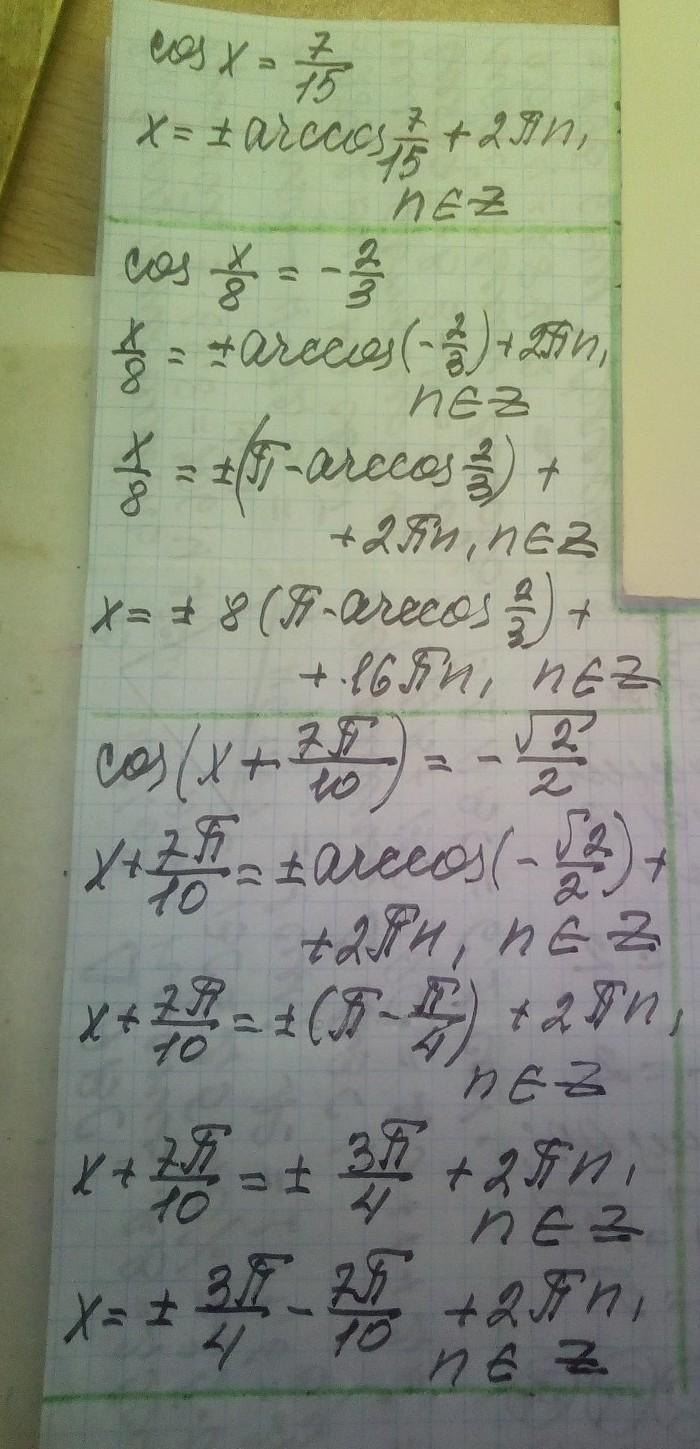 cos x = 7/15
x = ± arccos 7/15 + 2πn,
n ∈ Z
cos x/8 = - 2/3
x/8 = ± arccos(- 2/3) + 2πn,
n ∈ Z
x/8 = ±(π - arccos 2/3) +
+ 2πn, n ∈ Z
x = ± 8(π - arccos 2/3) +
+ 16πn, n ∈ Z
cos(x + 7π/10) = - √2/2
x + 7π/10 = ± arccos(- √2/2) +
+ 2πn, n ∈ Z
x + 7π/10 = ±(π - π/4) + 2πn,
n ∈ Z
x + 7π/10 = ± 3π/4 + 2πn,
n ∈ Z
x = ± 3π/4 - 7π/10 + 2πn,
n ∈ Z